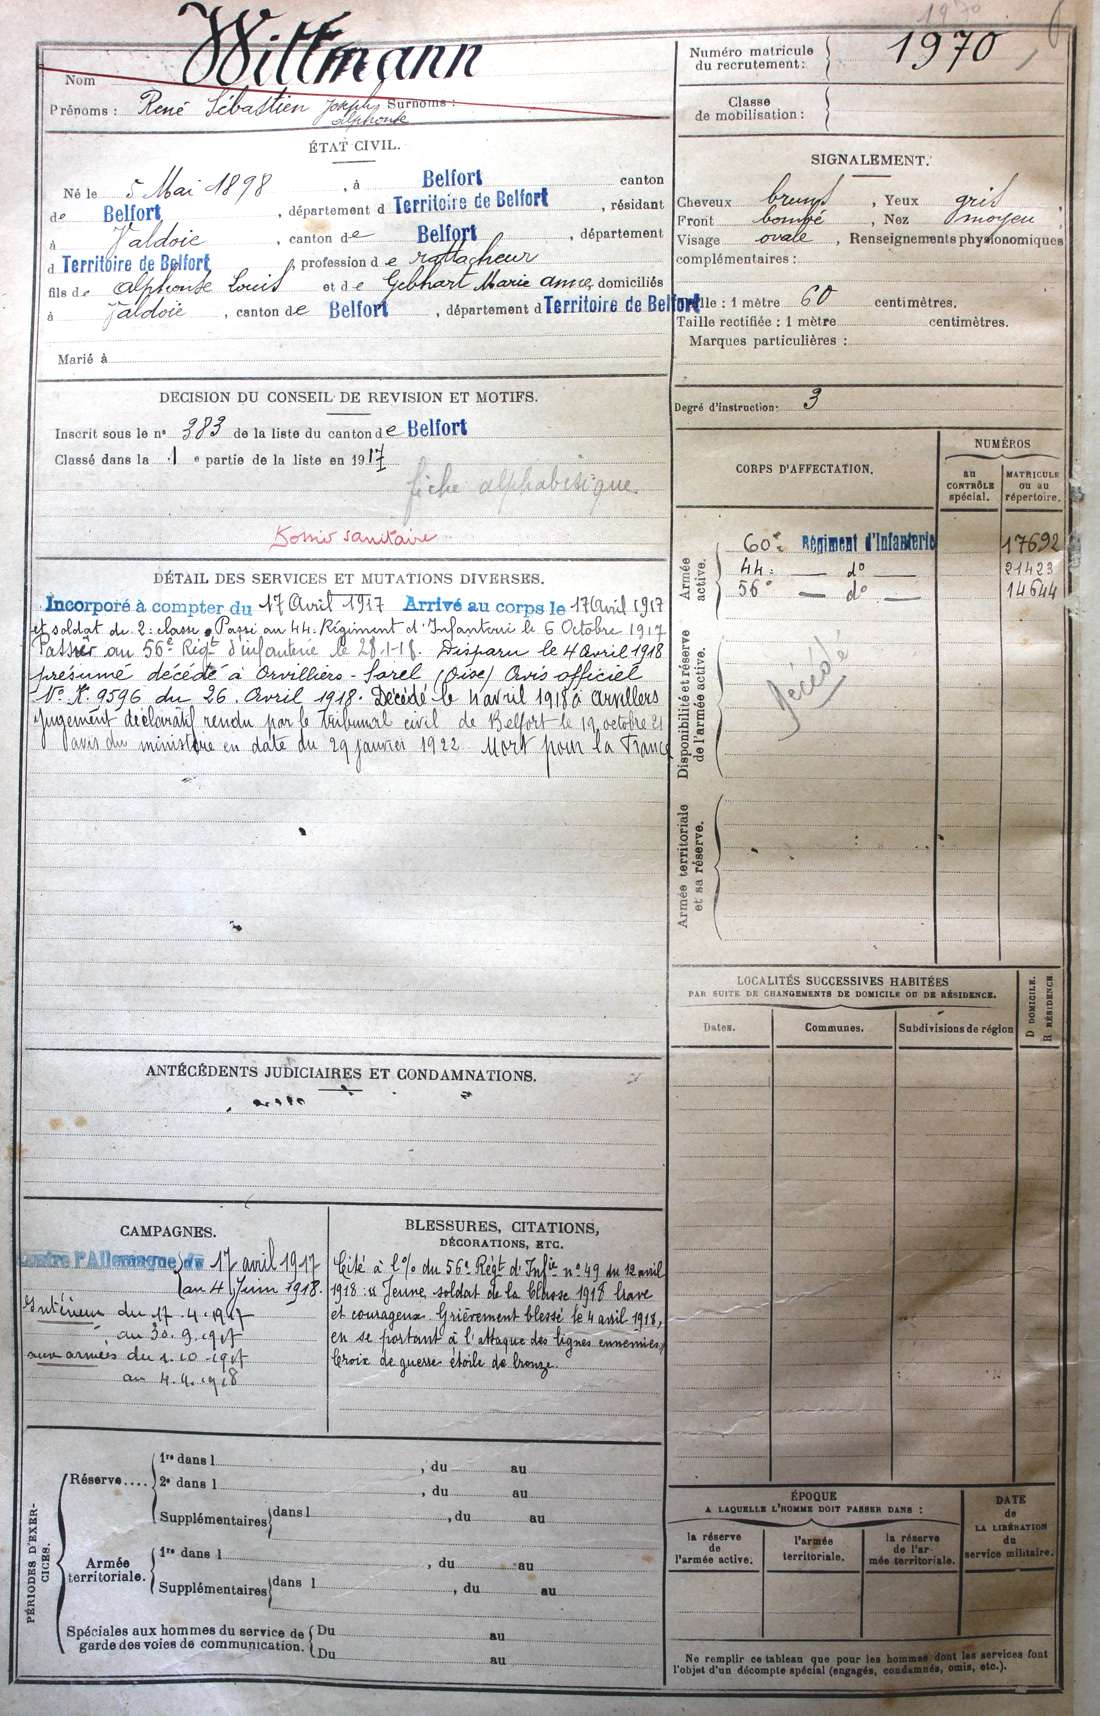 1970
Wittmann
Nom
Prénoms : René Sébastien Joseph Surnoms :
alphonse
ÉTAT CIVIL.
Né le 5 Mai 1898, à Belfort canton
de Belfort, département d Territoire de Belfort, résidant
à Valdoie, canton de Belfort, département
d Territoire de Belfort, profession de rattacheur
fils de alphonse Louis et de Gebhart Marie anne, domiciliés
à Valdoie, canton de Belfort, département d Territoire de Belfort
Marié à
DECISION DU CONSEIL DE REVISION ET MOTIFS.
Inscrit sous le n° 383 de la liste du canton de Belfort
Classé dans la 1e partie de la liste en 1917
fiche alphabétique.
Dossier sanitaire
DÉTAIL DES SERVICES ET MUTATIONS DIVERSES.
Incorporé à compter du 17 Avril 1917 Arrivé au corps le 17 avril 1917
et soldat de 2e classe. Passé au 44e Régiment d'Infanterie le 6 Octobre 1917
Passé au 56e Régt d'infanterie le 28-1-18. Disparu le 4 avril 1918
présumé décédé à Orvilliers-Sorel (Oise) Avis officiel
N° K. 9596 du 26 Avril 1918. Décédé le 4 avril 1918 à Arvillers
Jugement déclaratif rendu par le tribunal civil de Belfort le 19 octobre 21
avis du ministère en date du 29 janvier 1922 Mort pour la France
ANTÉCÉDENTS JUDICIAIRES ET CONDAMNATIONS.
CAMPAGNES.
Contre l'Allemagne du 17 avril 1917
au 4 Juin 1918.
Intérieur du 17.4.1917
au 30.9.1917
aux armées du 1.10.1917
au 4.4.1918
BLESSURES, CITATIONS,
DÉCORATIONS, ETC.
Cité à l'% du 56e Régt d'Infie n° 49 du 12 avril
1918. « Jeune soldat de la Classe 1918 brave
et courageux. Grièvement blessé le 4 avril 1918,
en se portant à l'attaque des lignes ennemies »
Croix de guerre étoile de bronze.
PÉRIODES D'EXERCICES.
Réserve....
1re dans l , du au
2e dans l , du au
Supplémentaires dans l , du au
Armée
territoriale.
1re dans l , du au
Supplémentaires dans l , du au
Spéciales aux hommes du service de
garde des voies de communication.
Du au
Du au
Numéro matricule
du recrutement : 1970
Classe
de mobilisation :
SIGNALEMENT.
Cheveux bruns, Yeux gris,
Front bombé, Nez moyen
Visage ovale, Renseignements physionomiques
complémentaires :
Taille : 1 mètre 60 centimètres.
Taille rectifiée : 1 mètre centimètres.
Marques particulières :
Degré d'instruction : 3
CORPS D'AFFECTATION.
NUMÉROS
au
CONTRÔLE
spécial.
MATRICULE
ou au
répertoire.
Armée
active.
60e Régiment d'Infanterie 17692
44e — do — 21423
56e — do — 14644
Disponibilité et réserve
de l'armée active.
Décédé
Armée territoriale
et sa réserve.
LOCALITÉS SUCCESSIVES HABITÉES
PAR SUITE DE CHANGEMENTS DE DOMICILE OU DE RÉSIDENCE.
Dates.
Communes.
Subdivisions de région
D DOMICILE.
R RÉSIDENCE.
ÉPOQUE
A LAQUELLE L'HOMME DOIT PASSER DANS :
la réserve
de
l'armée active.
l'armée
territoriale.
la réserve
de l'ar-
mée territoriale.
DATE
de
LA LIBÉRATION
du
service militaire.
Ne remplir ce tableau que pour les hommes dont les services font
l'objet d'un décompte spécial (engagés, condamnés, omis, etc.).